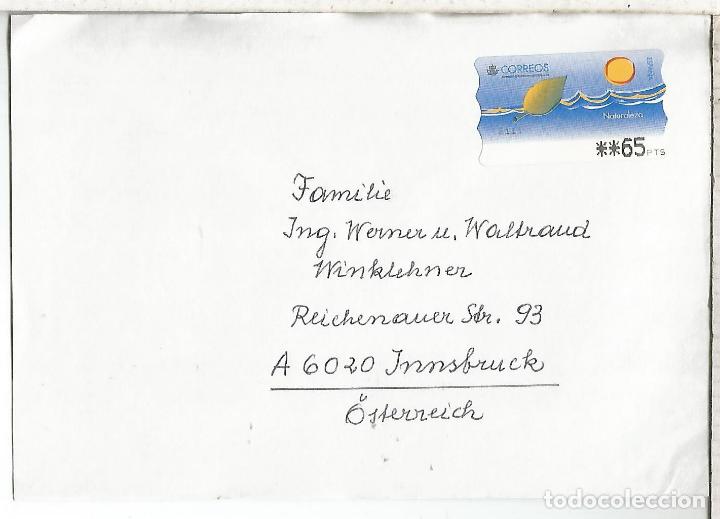 CORREOS
ESPAÑA
Naturaleza
**65 PTS
Familie
Ing. Werner u. Waltraud
Winklehner
Reichenauer Str. 93
A 6020 Innsbruck
Österreich
todocoleccion